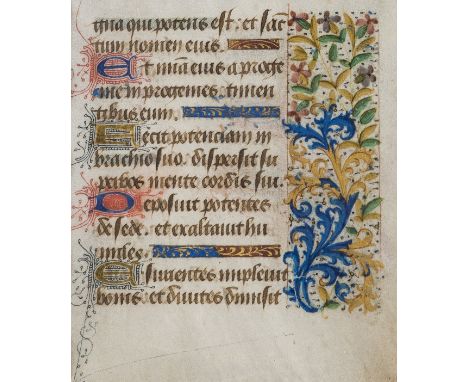 gna qui potens est: et sāc
tum nomen eius.
Et mīa eius a proge
nie in progenies: timen
tibus eum.
Fecit potenciam in
brachio suo. dispersit su
perbos mente cordis sui.
Deposuit potentes
de sede. et exaltauit hu
miles.
Esurientes impleuit
bonis: et diuites dimisit